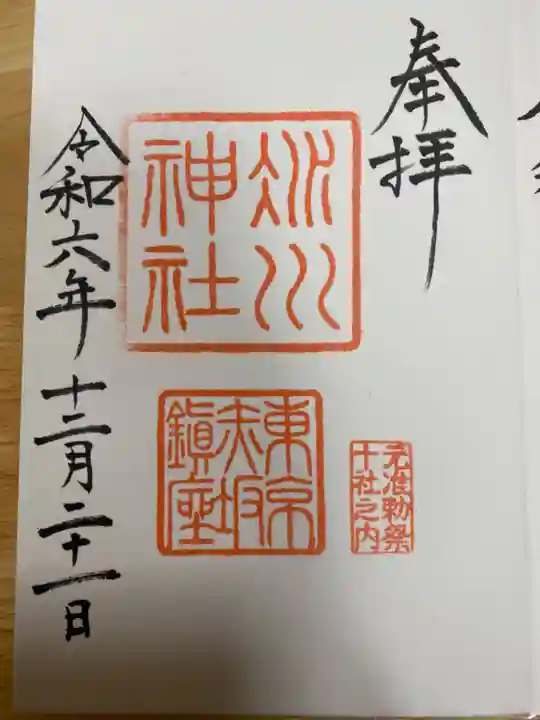 奉拝
氷川
神社
東京
赤坂
鎮座
元准勅祭
十社之内
令和六年 十二月 二十一日